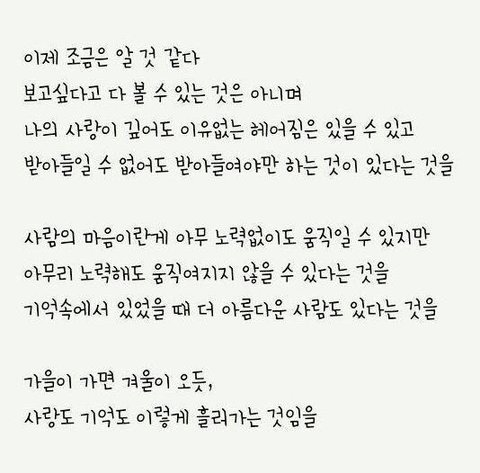 이제 조금은 알 것 같다
보고싶다고 다 볼 수 있는 것은 아니며
나의 사랑이 깊어도 이유없는 헤어짐은 있을 수 있고
받아들일 수 없어도 받아들여야만 하는 것이 있다는 것을
사람의 마음이란게 아무 노력없이도 움직일 수 있지만
아무리 노력해도 움직여지지 않을 수 있다는 것을
기억속에서 있었을 때 더 아름다운 사람도 있다는 것을
가을이 가면 겨울이 오듯,
사랑도 기억도 이렇게 흘러가는 것임을